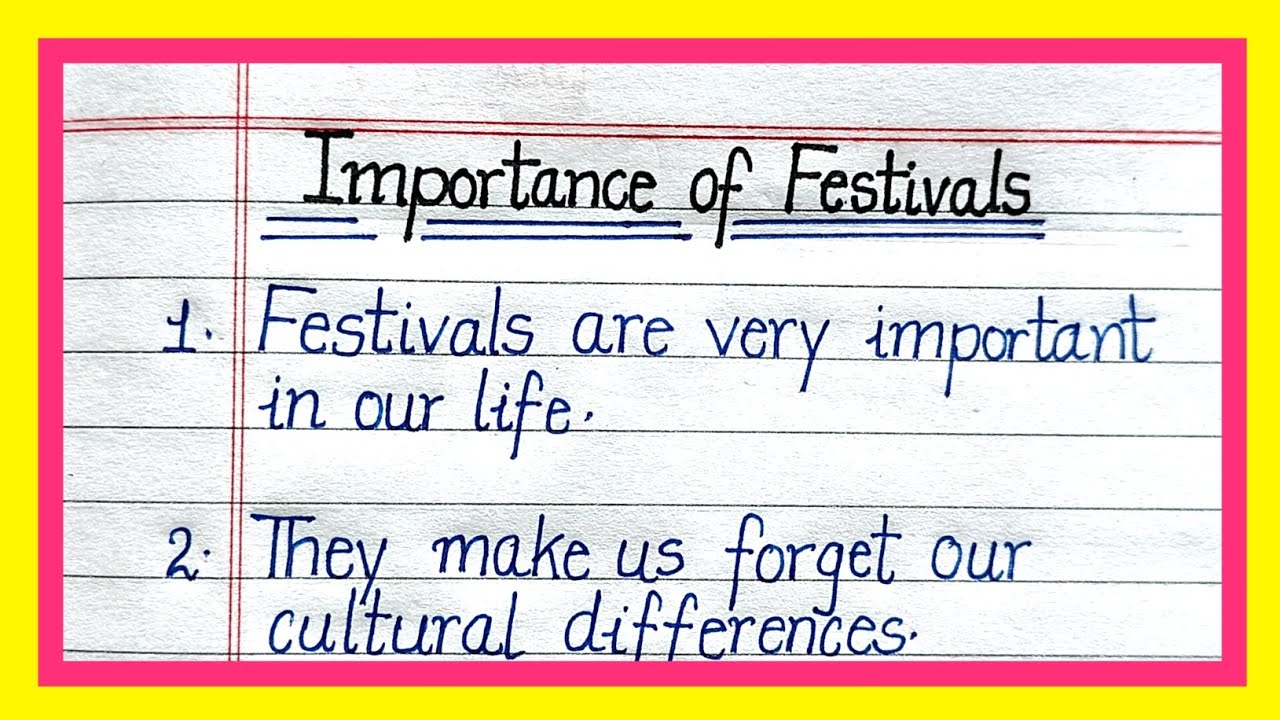 Importance of Festivals
1. Festivals are very important
in our life.
2. They make us forget our
cultural differences.